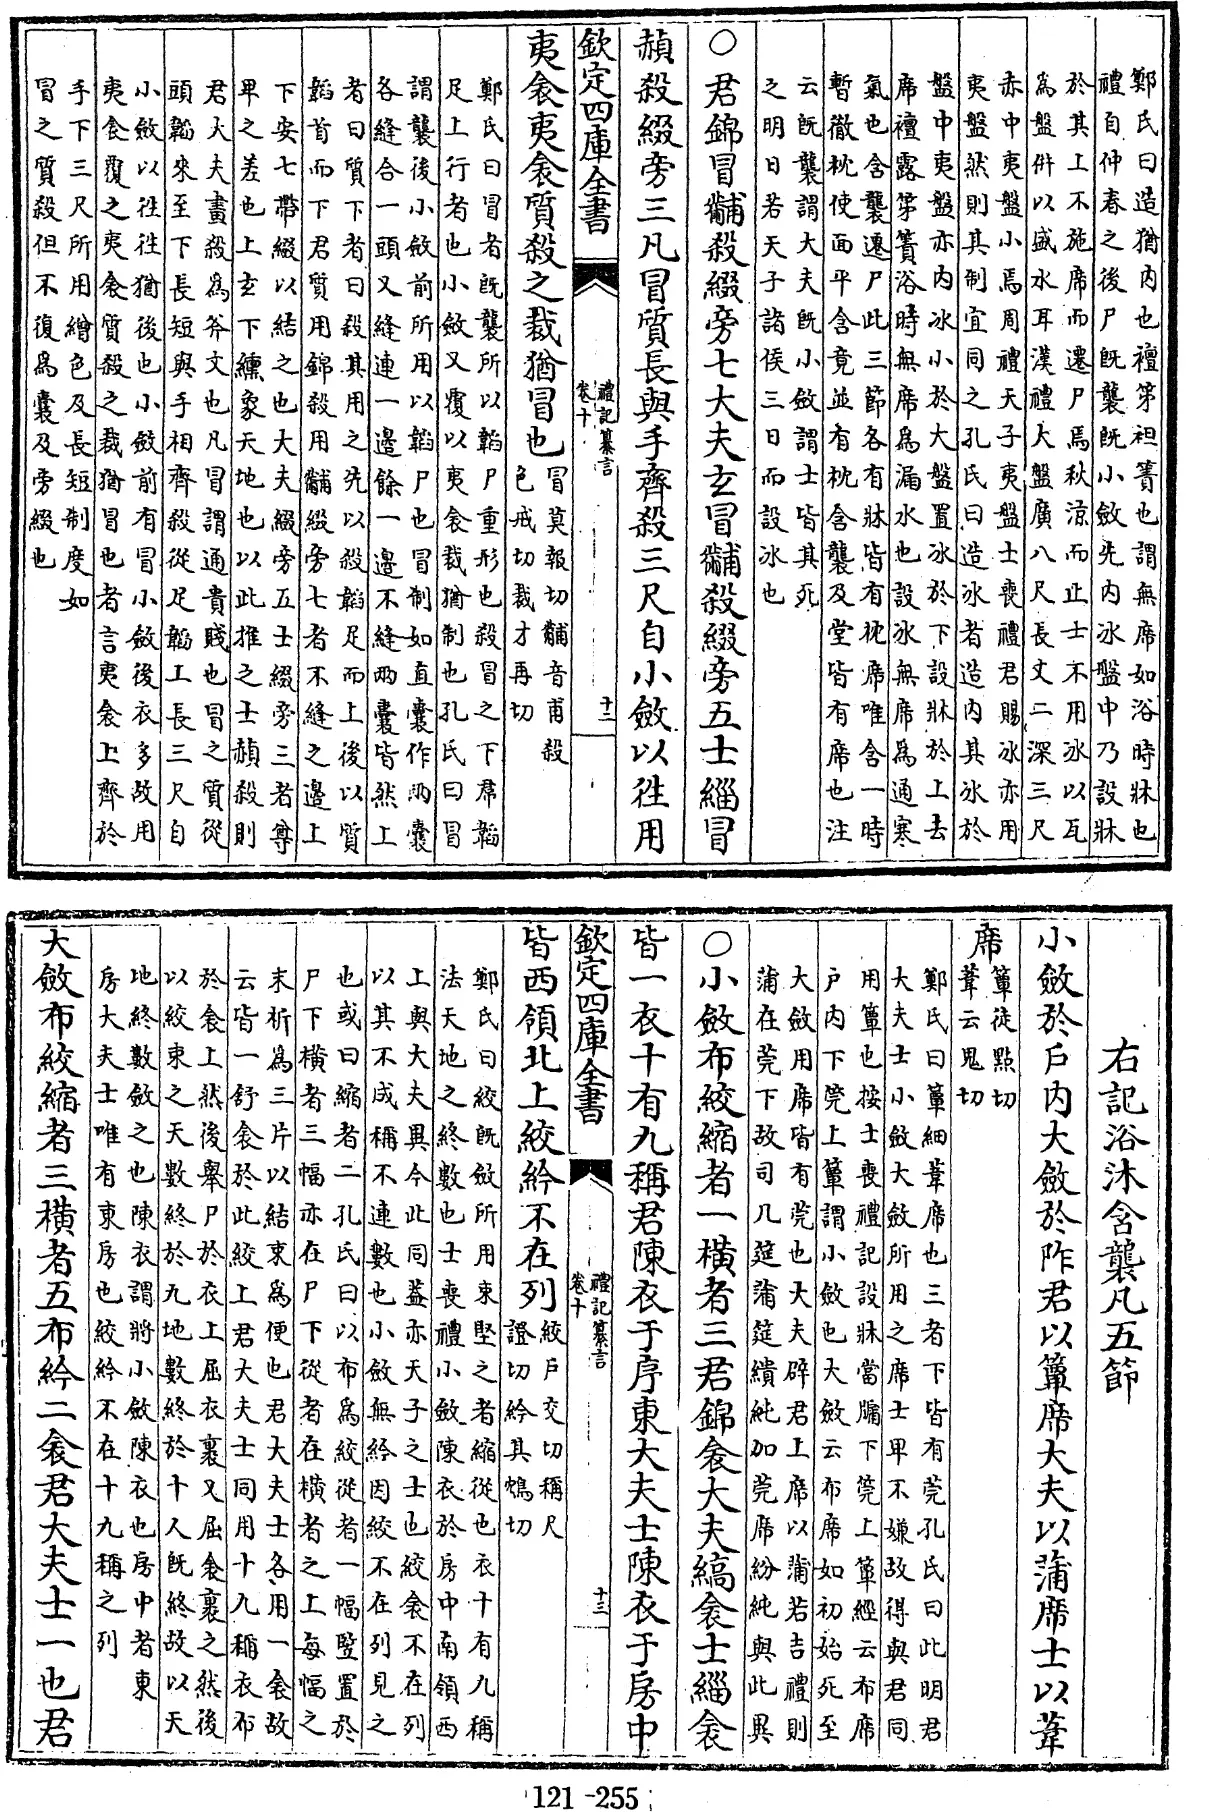 鄭氏曰造猶内也襢第袒簀也謂無席如浴時牀也
禮自仲春之後尸既襲既小斂先内冰盤中乃設牀
於其上不施席而遷尸焉秋涼而止士不用冰以瓦
為盤併以盛水耳漢禮大盤廣八尺長丈二深三尺
赤中夷盤小焉周禮天子夷盤士喪禮君賜冰亦用
夷盤然則其制宜同之孔氏曰造冰者造内其冰於
盤中夷盤亦内冰小於大盤置冰於下設牀於上去
席襢露第簀浴時無席為漏水也設冰無席為通寒
氣也含襲遷尸此三節各有牀皆有枕席唯含一時
暫徹枕使面平含竟並有枕含襲及堂皆有席也注
云既襲謂大夫既小斂謂士皆其死
之明日若天子諸侯三日而設冰也
○君錦冒黼殺綴旁七大夫玄冒黼殺綴旁五士緇冒
赬殺綴旁三凡冒質長與手齊殺三尺自小斂以往用
欽定四庫全書
禮記纂言
卷十
十三
夷衾夷衾質殺之裁猶冒也
冒莫報切黼音甫殺
色戒切裁才再切
鄭氏曰冒者既襲所以韜尸重形也殺冒之下帬韜
足上行者也小斂又覆以夷衾裁猶制也孔氏曰冒
謂襲後小斂前所用以韜尸也冒制如直囊作兩囊
各縫合一頭又縫連一邊餘一邊不縫兩囊皆然上
者曰質下者曰殺其用之先以殺韜足而上後以質
韜首而下君質用錦殺用黼綴旁七者不縫之邊上
下安七帶綴以結之也大夫綴旁五士綴旁三者尊
卑之差也上玄下纁象天地也以此推之士赬殺則
君大夫畫殺為斧文也凡冒謂通貴賤也冒之質從
頭韜來至下長短與手相齊殺從足韜上長三尺自
小斂以往往猶後也小斂前有冒小斂後衣多故用
夷衾覆之夷衾質殺之裁猶冒也者言夷衾上齊於
手下三尺所用繒色及長短制度如
冒之質殺但不復為囊及旁綴也
右記浴沐含襲凡五節
小斂於户内大斂於阼君以簟席大夫以蒲席士以葦
席
簟徒點切
葦云鬼切
鄭氏曰簟細葦席也三者下皆有莞孔氏曰此明君
大夫士小斂大斂所用之席士卑不嫌故得與君同
用簟也按士喪禮記設牀當牖下莞上簟經云布席
户内下莞上簟謂小斂也大斂云布席如初始死至
大斂用席皆有莞也大夫辟君上席以蒲若吉禮則
蒲在莞下故司几筵蒲筵繢純加莞席紛純與此異
○小斂布絞縮者一横者三君錦衾大夫縞衾士緇衾
皆一衣十有九稱君陳衣于序東大夫士陳衣于房中
欽定四庫全書
禮記纂言
卷十
十三
皆西領北上絞紟不在列
絞户交切稱尺
證切紟其鴆切
鄭氏曰絞既斂所用束堅之者縮從也衣十有九稱
法天地之終數也士喪禮小斂陳衣於房中南領西
上與大夫異今此同蓋亦天子之士也絞衾不在列
以其不成稱不連數也小斂無紟因絞不在列見之
也或曰縮者二孔氏曰以布為絞從者一幅豎置於
尸下横者三幅亦在尸下從者在横者之上每幅之
末析為三片以結束為便也君大夫士各用一衾故
云皆一舒衾於此絞上君大夫士同用十九稱衣布
於衾上然後舉尸於衣上屈衣裹又屈衾裹之然後
以絞束之天數終於九地數終於十人既終故以天
地終數斂之也陳衣謂將小斂陳衣也房中者東
房大夫士唯有東房也絞紟不在十九稱之列
大斂布絞縮者三横者五布紟二衾君大夫士一也君
121-255